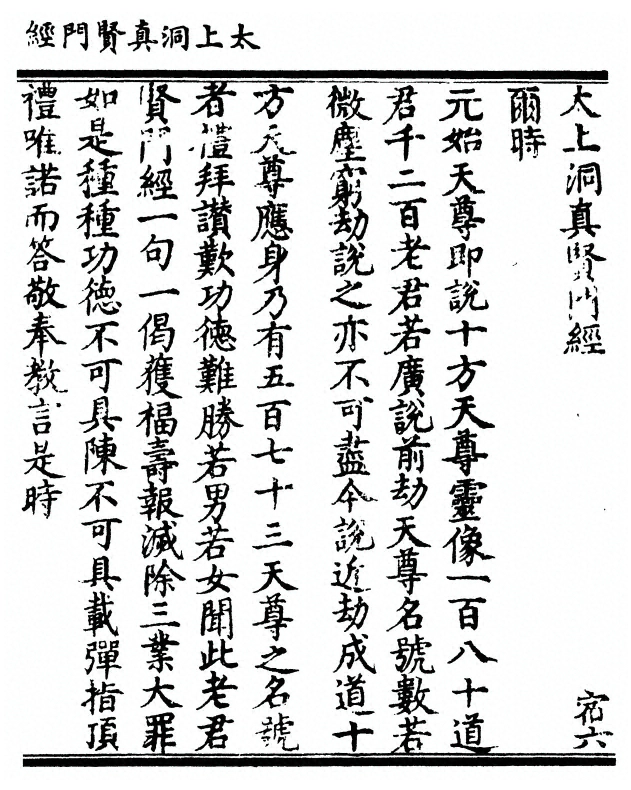 太上洞真賢門經
太上洞真賢門經 宿六
爾時
元始天尊即說十方天尊靈像一百八十道
君千二百老君若廣說前劫天尊名號數若
微塵窮劫說之亦不可盡今說近劫成道十
方天尊應身乃有五百七十三天尊之名號
者禮拜讚歎功德難勝若男若女聞此老君
賢門經一句一偈獲福壽報滅除三業大罪
如是種種功德不可具陳不可具載彈指頂
禮唯諾而答敬奉教言是時